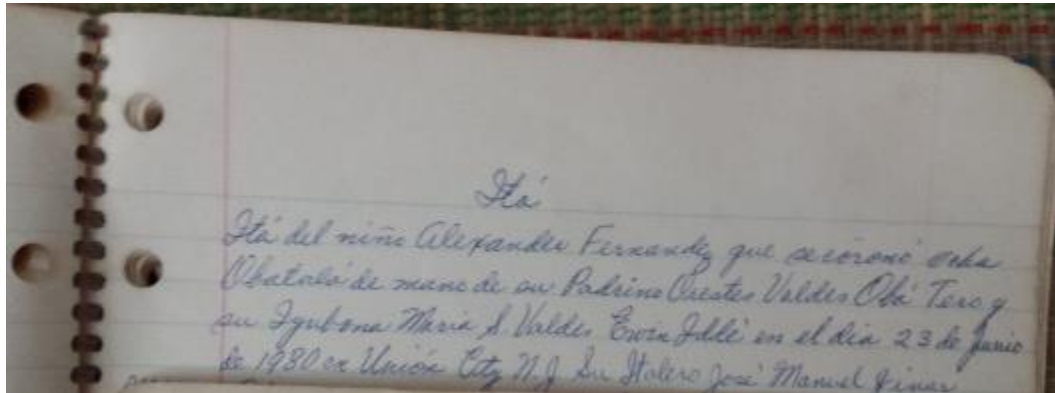 Itá
Itá del niño Alexander Fernandez que se coronó ocha
Obatalá de mano de su Padrino Orestes Valdes Obá Tero y
su Oyubona Maria S. Valdes Ewin Iddlé en el dia 23 de Junio
de 1980 en Unión City N.J. Su Italero José Manuel